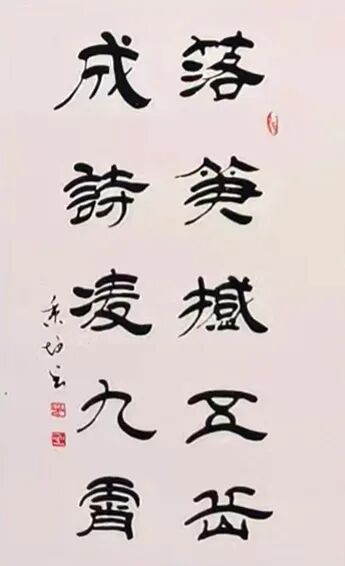 落筆撼五岳
成詩凌九霄